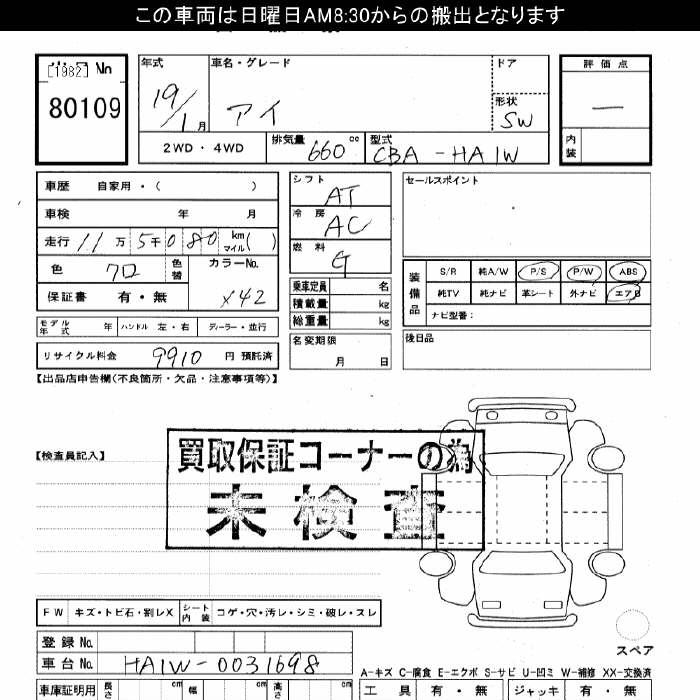 この車両は日曜日AM8:30からの搬出となります
[1982] No
80109
年式 車名・グレード ドア 評価点
19/1月 アイ 形状 SW —
2WD・4WD 排気量 660 cc 型式 CBA-HA1W 内装
車歴 自家用・( )
車検 年 月
走行 11万5千080 km マイル ( )
色 クロ 色替 カラーNo. X42
保証書 有・無
モデル年式 年 ハンドル 左・右 ディーラー・並行
リサイクル料金 9910 円 預託済
シフト AT
冷房 AC
燃料 G
乗車定員 名
積載量 kg
総重量 kg
名変期限
月 日
セールスポイント
装備品 S/R 純A/W P/S P/W ABS
純TV 純ナビ 革シート 外ナビ エアB
ナビ型番:
後日品
【出品店申告欄(不良箇所・欠品・注意事項等)】
【検査員記入】
買取保証コーナーの為
未検査
FW キズ・トビ石・割レX シート内装 コゲ・穴・汚レ・シミ・破レ・スレ
登録No.
車台No. HA1W-0031698
スペア
A-キズ C-腐食 E-エクボ S-サビ U-凹ミ W-補修 XX-交換済
車庫証明用 長さ cm 幅 cm 高さ cm 工具 有・無 ジャッキ 有・無